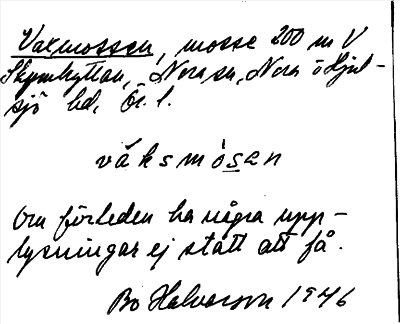 Vaxmossen, mosse 200 m V
Skymhyttan, Nora sn, Nora o Hjul-
sjö bd, Ör. l.
våksmòsen
Om förleden ha några upp-
lysningar ej stått att få.
Bo Halvarson 1946